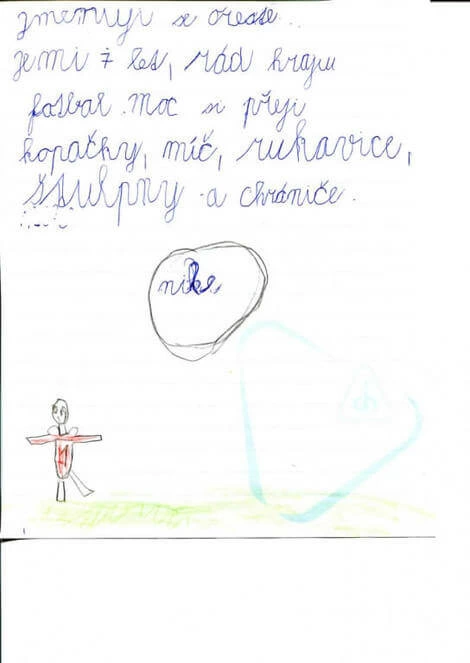 jmenuji se oreste..
je mi 7 let, rád hraju
fotbal. moc si přeji
kopačky, míč, rukavice,
štulpny a chrániče.
nike